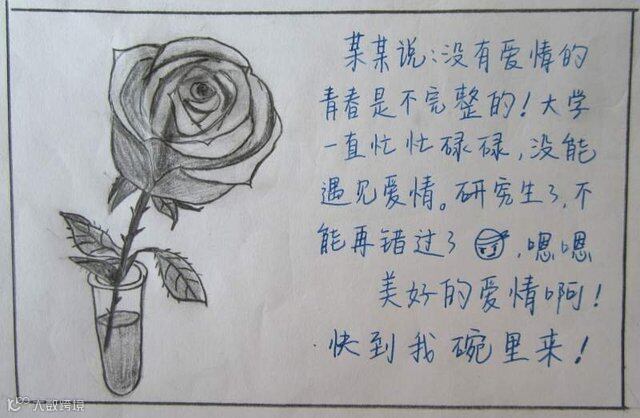 某某说:没有爱情的
青春是不完整的!大学
一直忙忙碌碌,没能
遇见爱情。研究生了,不
能再错过了,嗯嗯
美好的爱情啊!
快到我碗里来!
大数跨境